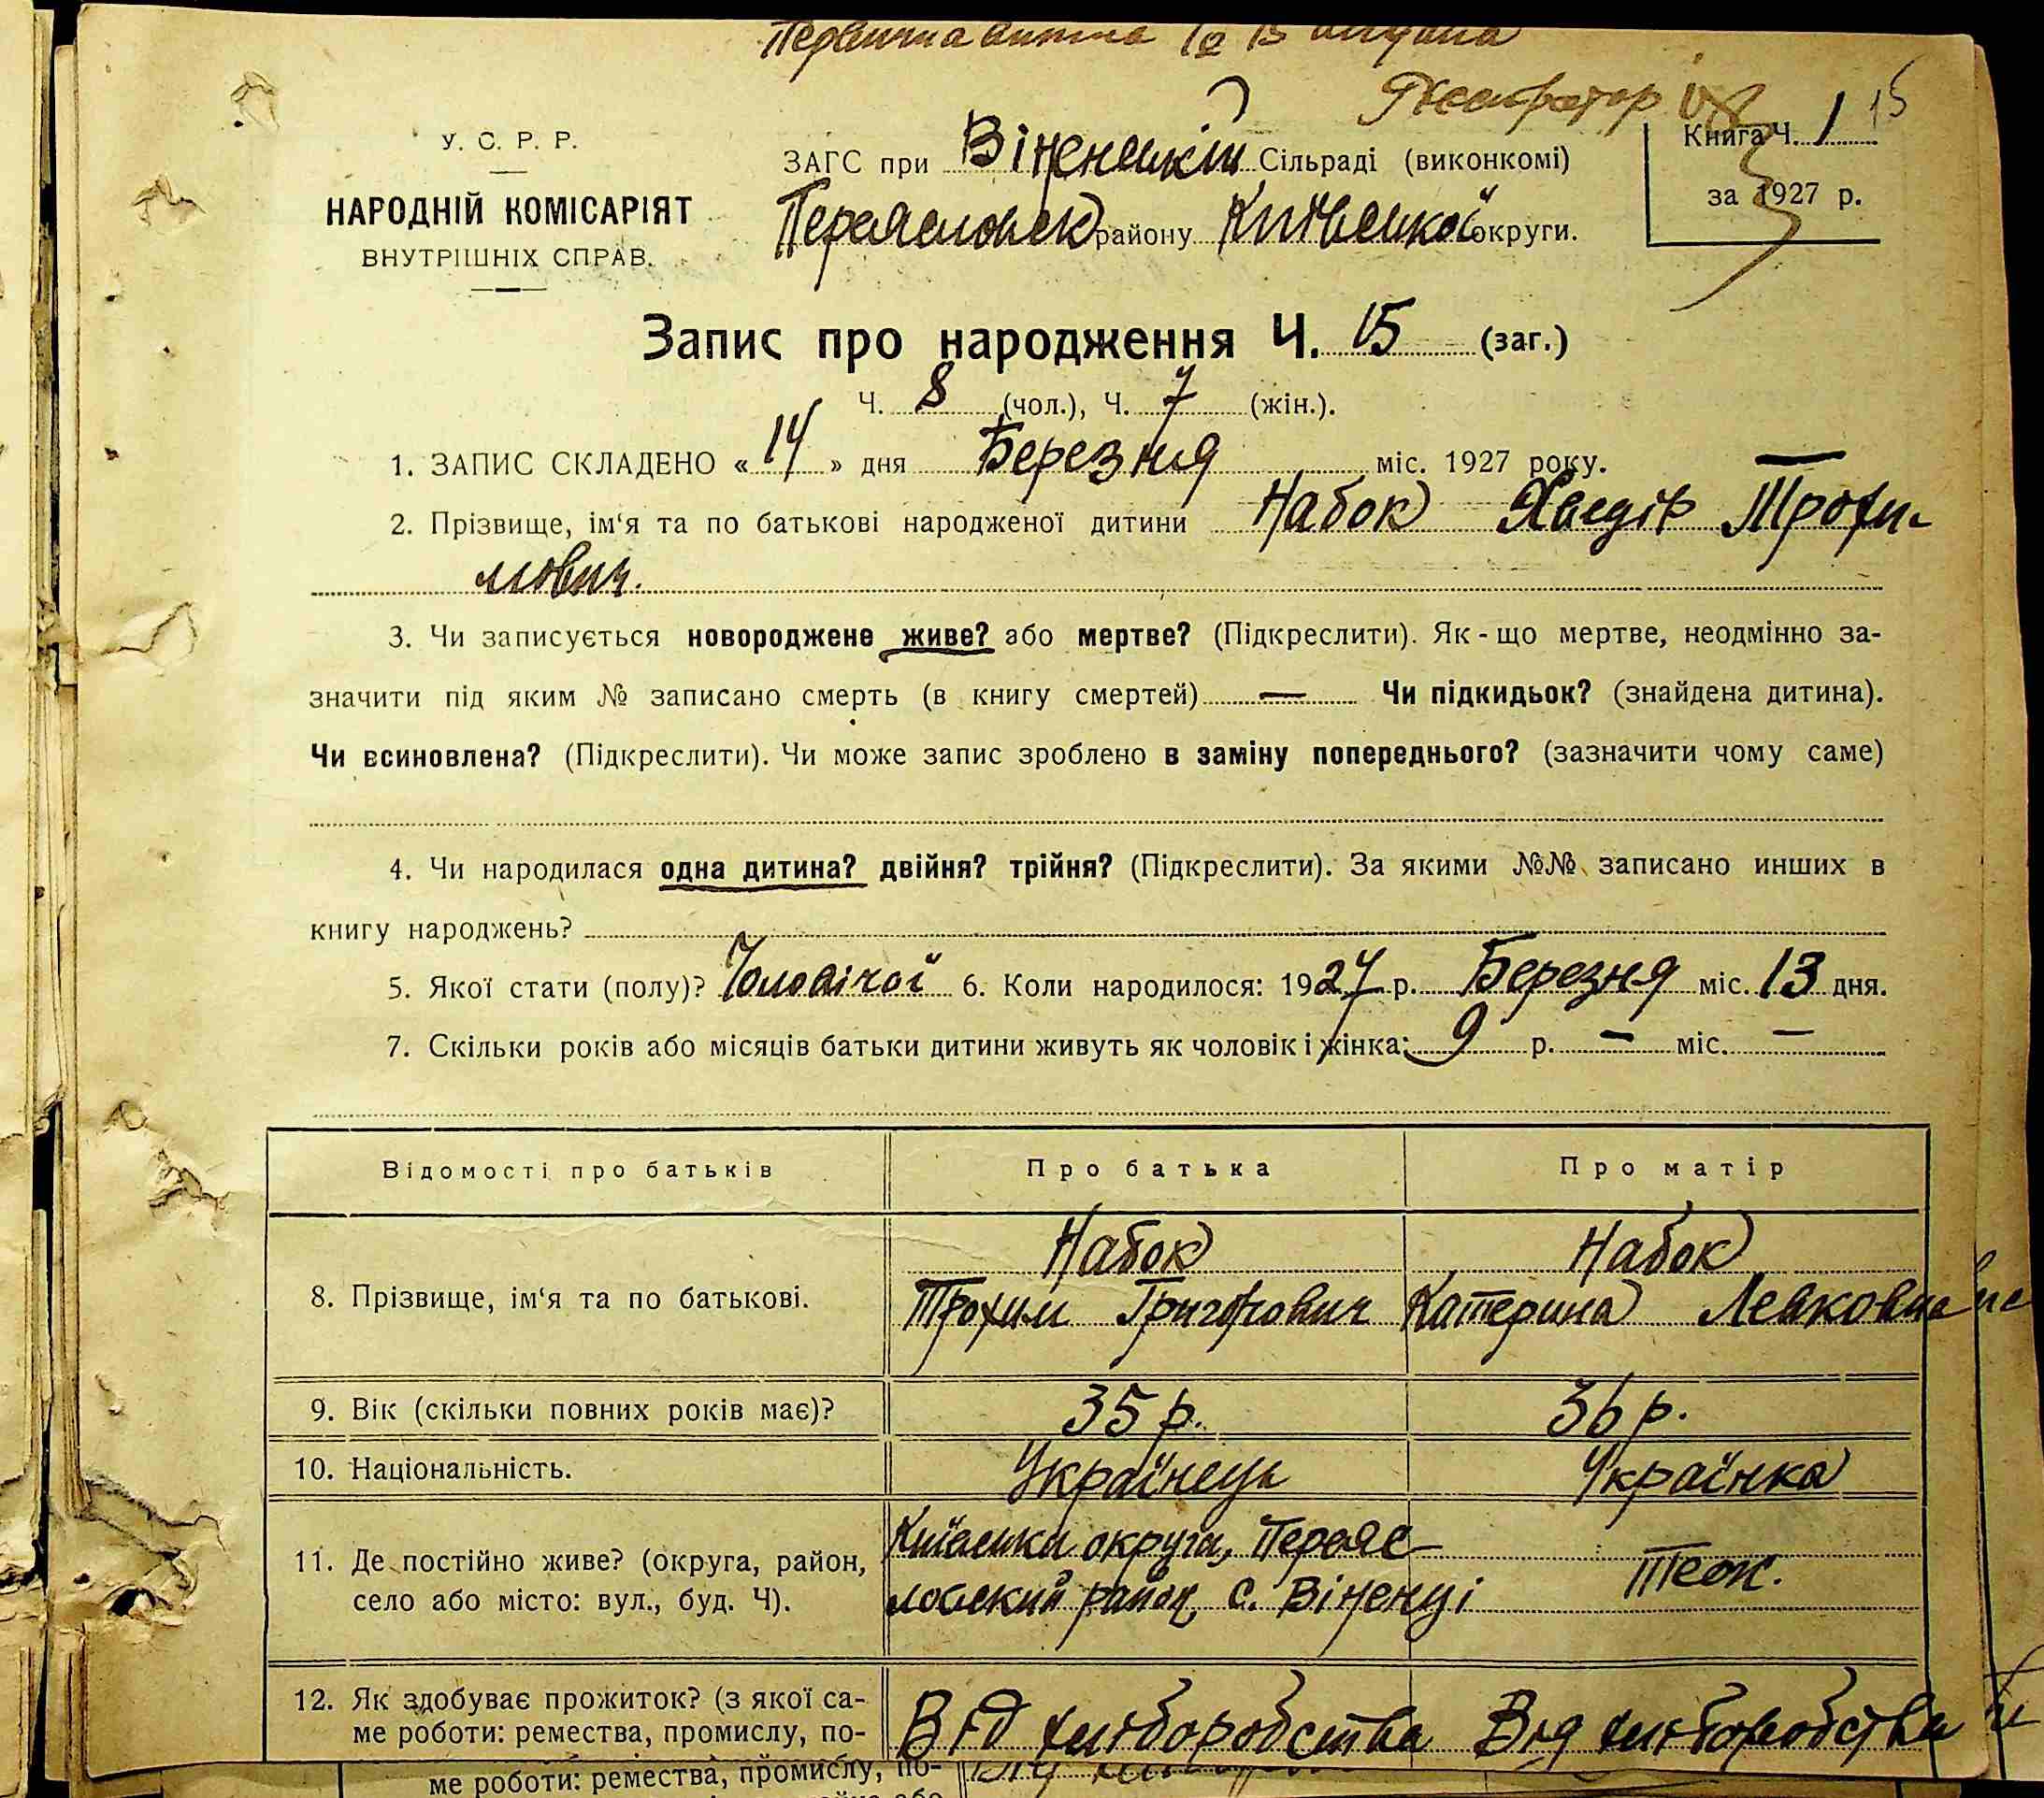 У. С. Р. Р.
НАРОДНІЙ КОМІСАРІЯТ
ВНУТРІШНІХ СПРАВ.
ЗАГС при Віненській Сільраді (виконкомі)
Переяславськ району Київської округи.
Книга Ч. 1 15
за 1927 р.
Запис про народження Ч. 15 (заг.)
Ч. 8 (чол.), Ч. 7 (жін.).
1. ЗАПИС СКЛАДЕНО « 14 » дня Березня міс. 1927 року.
2. Прізвище, ім‘я та по батькові народженої дитини Набок Хведір Трохи-
мович.
3. Чи записується новороджене живе? або мертве? (Підкреслити). Як-що мертве, неодмінно за-
значити під яким № записано смерть (в книгу смертей) — Чи підкидьок? (знайдена дитина).
Чи всиновлена? (Підкреслити). Чи може запис зроблено в заміну попереднього? (зазначити чому саме)
4. Чи народилася одна дитина? двійня? трійня? (Підкреслити). За якими №№ записано инших в
книгу народжень?
5. Якої стати (полу)? Чоловічої 6. Коли народилося: 1927 р. Березня міс. 13 дня.
7. Скільки років або місяців батьки дитини живуть як чоловік і жінка: 9 р. — міс. —
Відомості про батьків Про батька Про матір
8. Прізвище, ім‘я та по батькові. Набок Набок
Трохим Григорович Катерина Левковна
9. Вік (скільки повних років має)? 35 р. 36 р.
10. Національність. Українець Українка
11. Де постійно живе? (округа, район,
село або місто: вул., буд. Ч).
Київська округа, Переяс-
лавский район, с. Віненці Теж.
12. Як здобуває прожиток? (з якої са-
ме роботи: ремества, промислу, по-
Від хліборобства Від хліборобства
ме роботи: ремества, промислу, по-